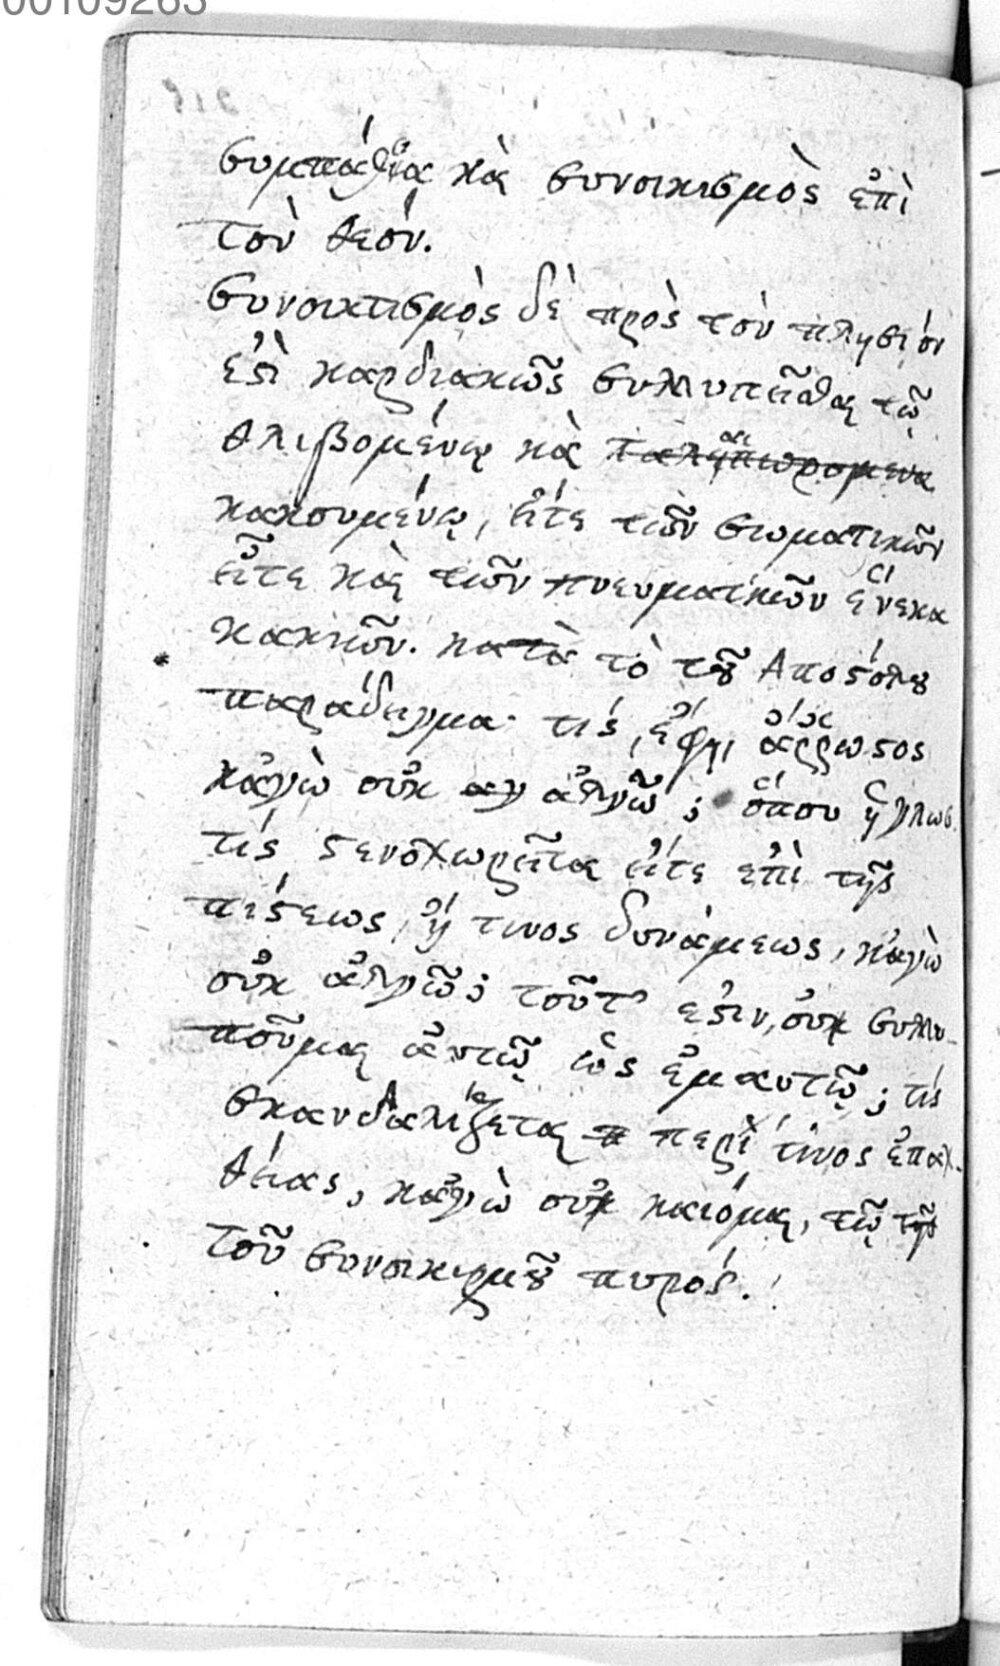 00109263
συμπάθεια καὶ συνοικισμὸς ἐπὶ
τὸν θεόν.
Συνοικτισμὸς δὲ πρὸς τὸν πλησίον
ἐστὶ καρδιακῶς συλλυπεῖσθαι τῷ
θλιβομένῳ καὶ ταλαιπωρομενα
κακουμένῳ, εἴτε τῶν σωματικῶν
εἴτε καὶ τῶν πνευματικῶν ἕνεκα
κακιῶν. κατὰ τὸ τοῦ Αποστόλου
παράδειγμα· τίς, ἔφη, ἄρρωστος
κἀγὼ οὐκ ἀλγῶ; ὅπου ἡ γλωσ.
τίς στενοχωρεῖται εἴτε ἐπὶ τῆς
πίστεως, ἤ τινος δυνάμεως, κἀγὼ
οὐκ ἀλγῶ; τοῦτ' ἐστιν, οὐκ συλλυ-
ποῦμαι αὐτῷ ὡς ἐμαυτῷ; τίς
σκανδαλίζεται περί τινος ἐπαχ-
θείας, κἀγὼ οὐκ καίομαι, τῷ τῆς
τοῦ συνοικισμοῦ πυρός.